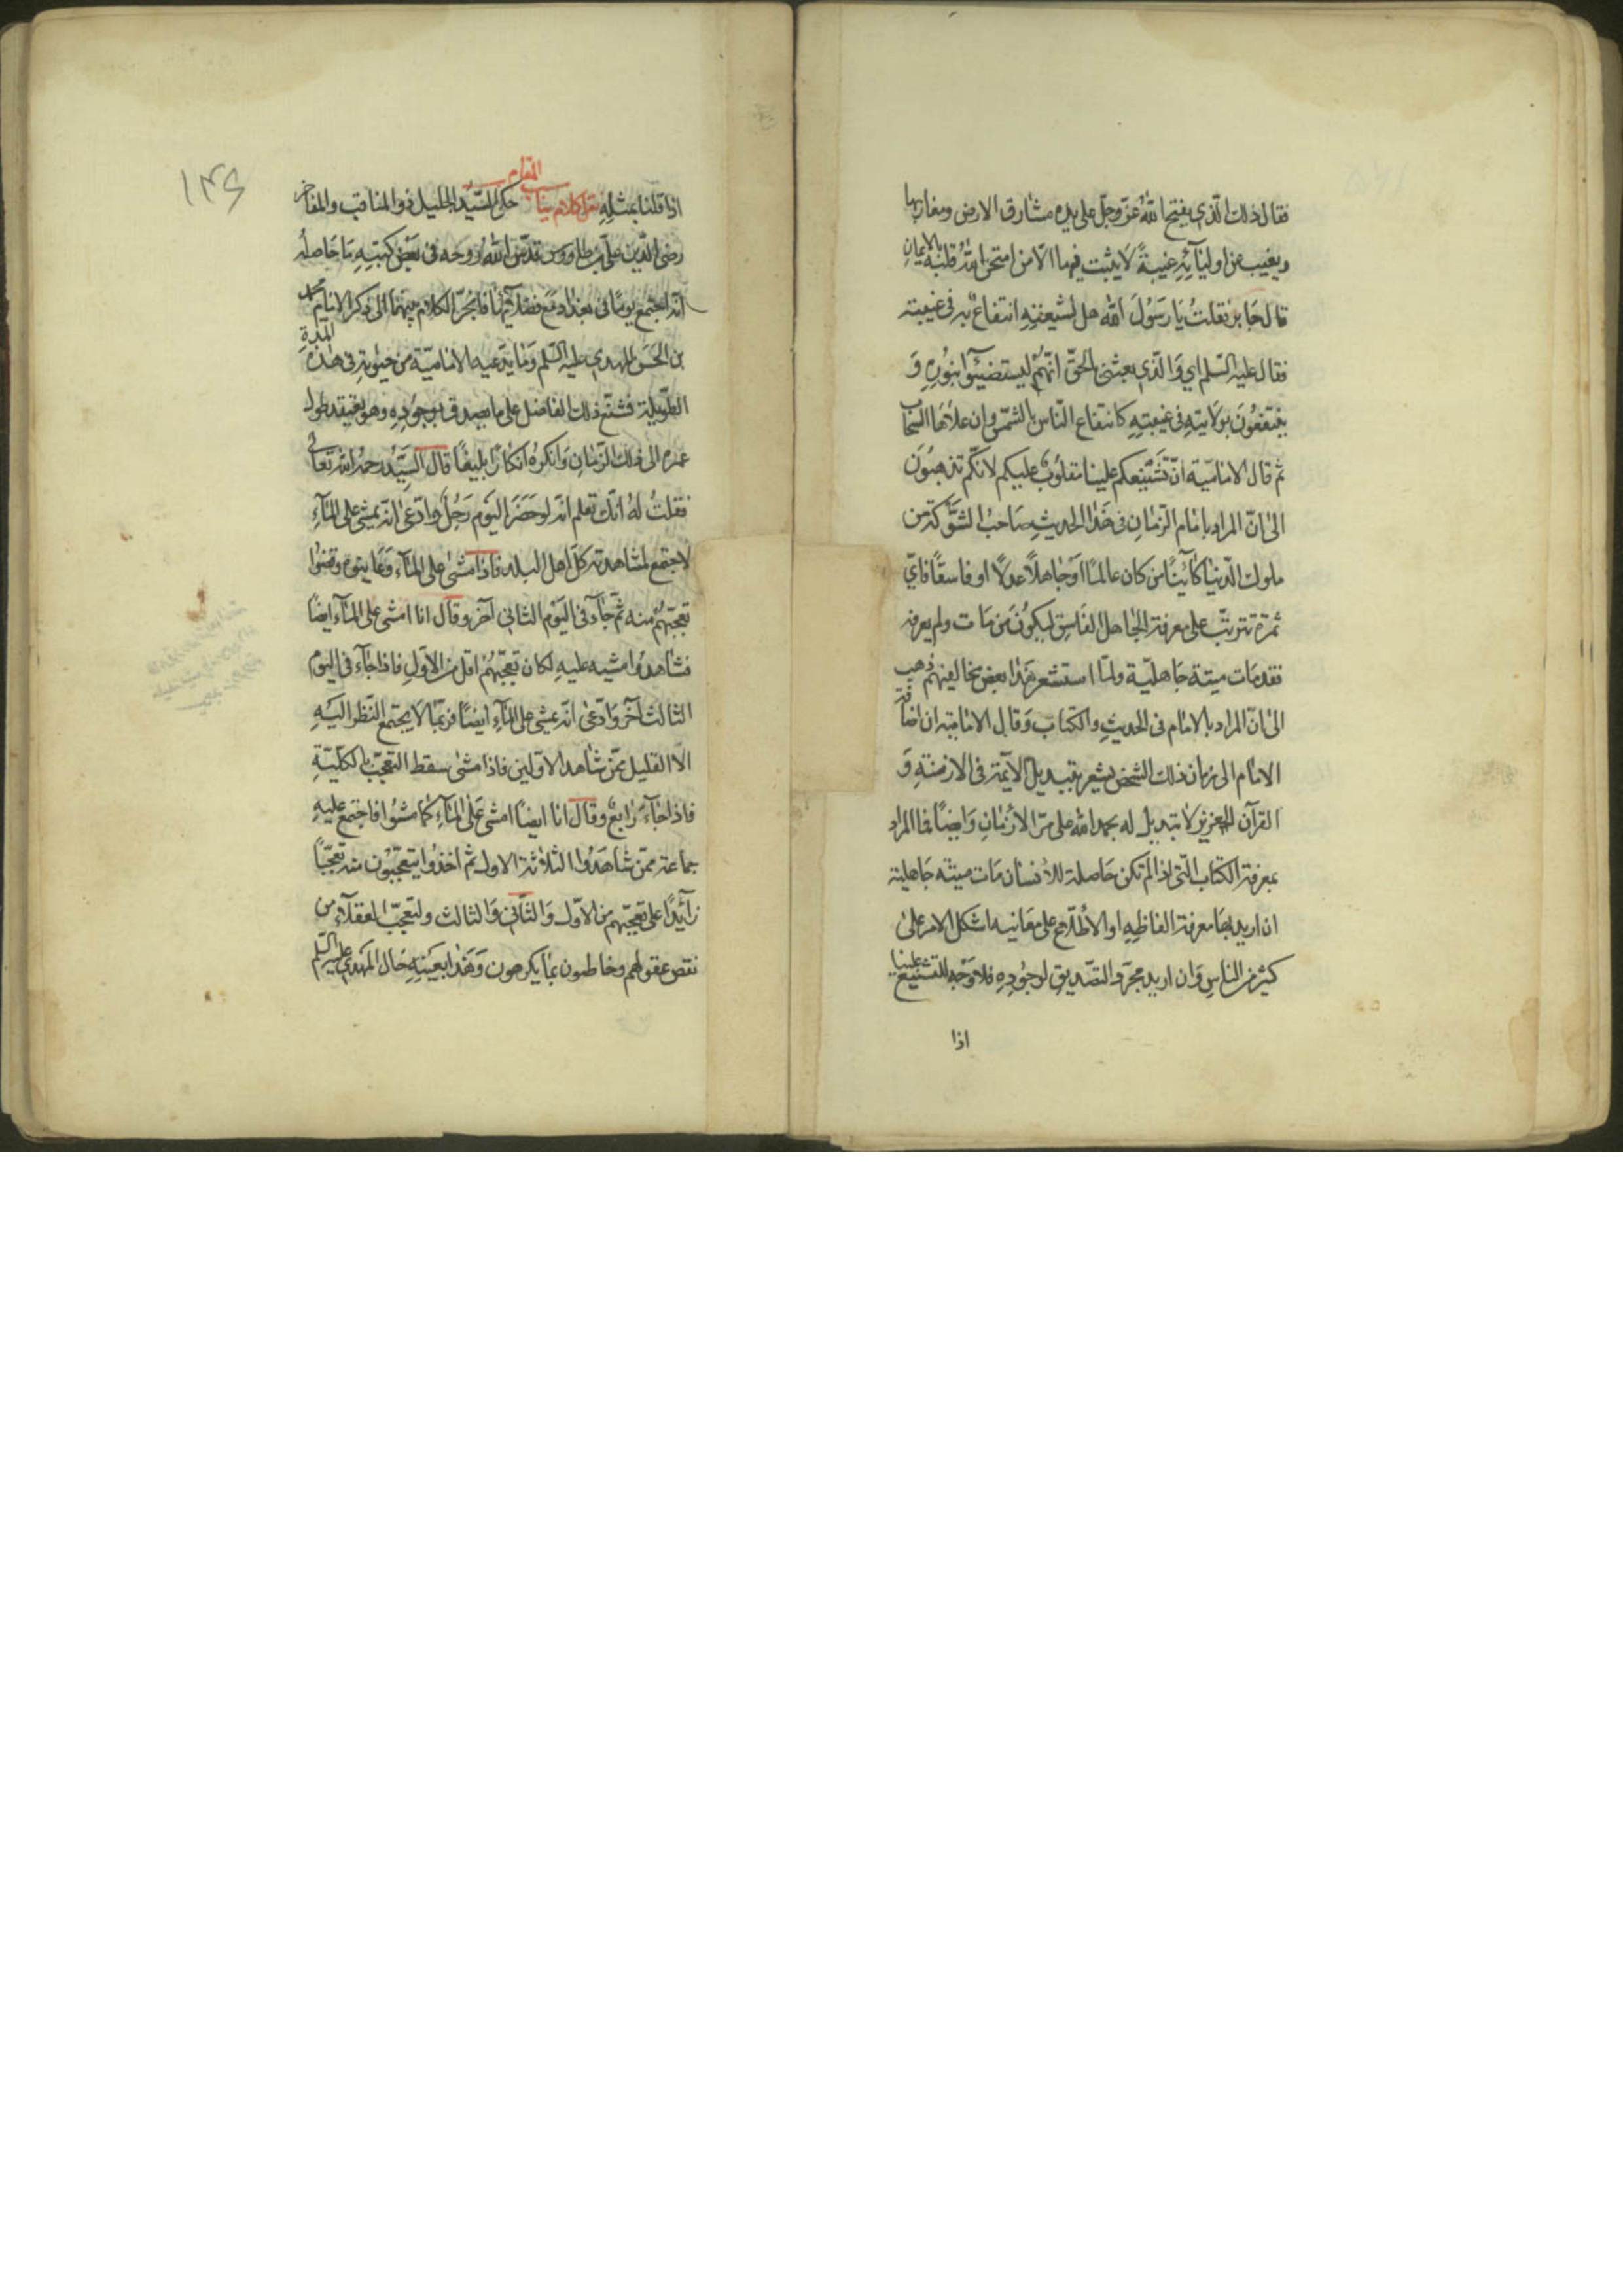 فقال ذلك الّذي يفتح اللّه عزّ وجلّ على يده مشارق الارض ومغاربها
ويغيب عن اوليآئه غيبةً لا يثبت فيها الاّ من امتحن اللّه قلبه بالايمانِ
قال جابر فقلتُ يا رسُولَ اللّه هل لشيعتهِ انتفاعٌ به في غيبته
فقال عليه السّلم اي والّذي بعثني بالحقّ انّهم ليستضيئوا بنُورِهِ وَ
ينتفعُونَ بولايتهِ في غيبتِهِ كانتفاع النّاس بالشمّس وان علاها السّحاب
ثم قال الاماميّة انّ تَشْنيعكم علينا مقلُوبٌ عليكم لانّكم تذهبُونَ
الى انّ المراد بامام الزّمانِ في هَذا الحديثِ صَاحبُ الشّوكة من
ملوك الدّنيا كآئنًا من كان عالمًا اَوْ جاهلاً عدلاً او فاسقًا فايّ
ثمرة تترتّب على معرفة الجاهل الفَاسِق ليكُونَ مَن مَات ولم يعرفه
فقد مَات ميتة جَاهليّة ولمّا استشعر هَذا بعض مخالفيهُم ذهب
الى انّ المراد بالامام في الحديثِ والكتاب وَقال الاماميّة ان اضافة
الامام الى زمان ذلك الشّخص يشعر بتبديل الائمّة في الازمنةِ وَ
القرآن العزيز لا تبديل له بحمد اللّه على مرّ الازمانِ وَايضًا فما المراد
بمعرفة الكتاب الّتي اذا لم تكن حَاصلة للانسان مَات ميتة جَاهلية
ان اريد بها معرفة الفاظِهِ او الاطّلاع على معَانيه اشكل الامر على
كثير من الناسِ وَان اريد مجرّد التصّديقِ لوجُودِهِ فلا وَجه للتشنيع علينا
اذا
١٣٤
اذا قلنا بمثلِهِ نقل كلام يناسب المقام حكى السّيّد الجليل ذو المناقب والمفاخر
رضى الدّين علىّ بن طاووس قدّس اللّهُ رُوحه في بَعْض كتبِهِ مَا حَاصلُه
انّه اجتمع يومًا في بغداد مع فضلآئها فانجرّ الكلام بينهما الى ذكر الامام محمّد
بن الحَسَن المهدي عليه السّلم وَما يَدّعيه الاماميّة من حيوته في هَذه المدّةِ
الطّويلة فشنّع ذلك الفاضل على ما يصدق بوجُودِهِ وهو يعتقد طول
عمره الى ذلك الزّمان وَانكره انكارًا بليغًا قالَ السيّدُ رحمه اللّه تعالى
فقلتُ لهُ انّك تعلم انّه لو حَضَرَ اليَوم رَجُلٌ وادّعى انّه يمشي على المآءِ
لاجتمع لمشاهدته كلّ اهل البلد فاذا مشى على المآء وَعاينوه وقضوا
تعجّبهُم منه ثمّ جآء في اليَوم الثاني آخر وقال انا امشي على المآء ايضًا
فشاهدُوا مشيه عليهِ لكان تعجّبهُم اقل من الاوّلِ فاذا جآء في اليَوم
الثالث آخر وَادّعى انّه يمشي على المآءِ ايضًا فربّما لا يجتمع النّظر اليَهِ
الاّ القليل ممّن شاهد الاوّلين فاذا مشى سقط التعجّب بالكلّيّةِ
فاذا جآءَ رابعٌ وقال انا ايضًا امشي عَلى المآءِ كما مشوُا فاجتمع عليهِ
جماعة ممّن شاهَدُوا الثّلاثة الاول ثم اخذُوا يتعجّبُون منه تعجّبًا
زآئدًا على تعجّبهم من الاوّل وَالثّاني وَالثالث ولتعجّب العقلآء من
نقص عقولهم وخاطبون بما يكرهون وَهَذا بعَينهِ حَال المَهدي عليه السّلم